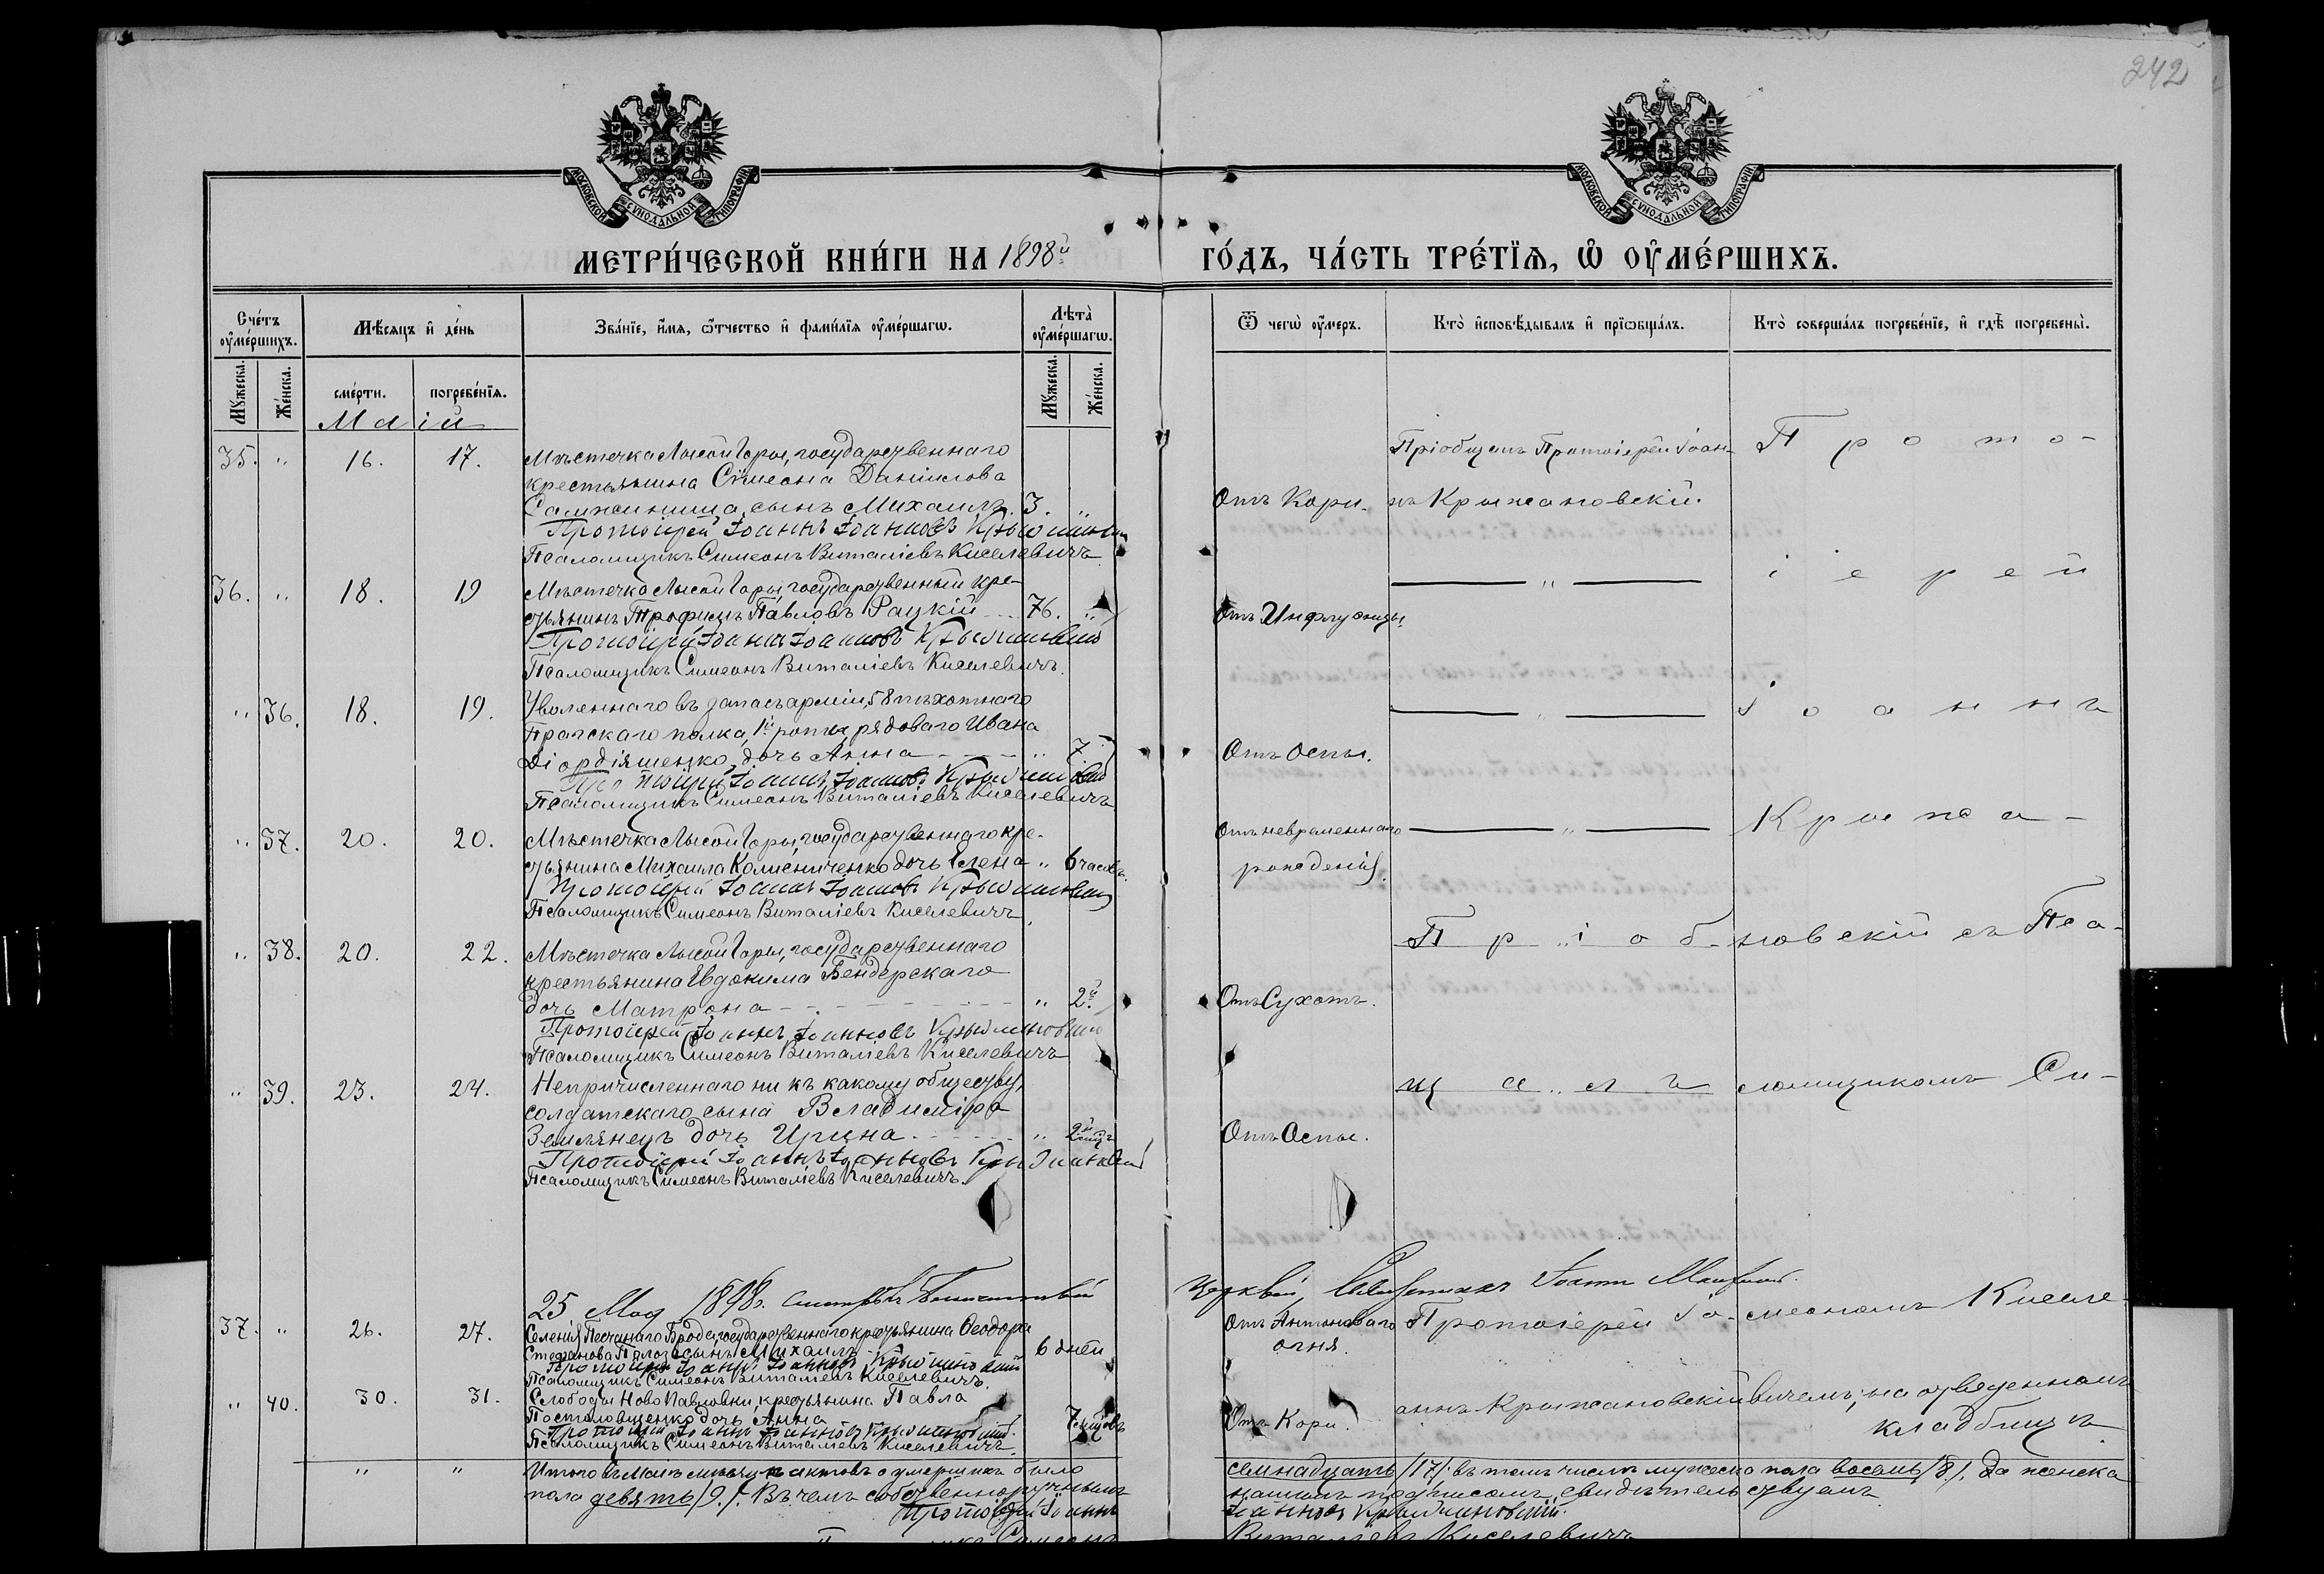 242
МОСКОВСКОЙ СѴНОДАЛЬНОЙ ТИПОГРАФІИ
МОСКОВСКОЙ СѴНОДАЛЬНОЙ ТИПОГРАФІИ
МЕТРИ́ЧЕСКОЙ КНИ́ГИ НА 1898й ГО́ДЪ, ЧА́СТЬ ТРЕ́ТЇѦ, Ѡ ОУМЕ́РШИХЪ.
Сче́тъ оуме́ршихъ.
Мѣ́сяцъ и де́нь
Зва́нїе, и́мя, ѻ́тчество и фами́лїя оуме́ршагѡ.
Лѣта̀ оуме́ршагѡ.
Ѿ чегѡ̀ оу́меръ.
Кто̀ исповѣ́дывалъ и прїѻбща́лъ.
Кто̀ соверша́лъ погребе́нїе, и гдѣ̀ погребены̀.
Му́жеска.
Же́нска.
сме́рти.
погребе́нїя.
Му́жеска.
Же́нска.
Маій
35. " 16. 17. Мѣстечка Лысой Горы, государственнаго
крестьянина Сѷмеона Даниилова
сынъ Михаилъ. 3. "
Протоіерей Іоаннъ Іоанновъ Крыжановскій
Псаломщикъ Симеонъ Виталіевъ Киселевичъ.
Отъ Кори.
Пріобщалъ Протоіерей Іоан-
нъ Крыжановскій.
Прото-
36. " 18. 19 Мѣстечка Лысой Горы, государственный кре-
стьянинъ Трофимъ Павловъ Рацкій 76. "
Протоіерей Іоаннъ Іоанновъ Крыжановскій
Псаломщикъ Симеонъ Виталіевъ Киселевичъ.
Отъ Инфлуэнцы.
"
іерей
" 36. 18. 19. Уволеннаго въ запасъ арміи, 58 пѣхотнаго
Прагскаго полка, 1й роты, рядоваго Ивана
Діордіященко, дочь Анна " 7.
Протоіерей Іоаннъ Іоанновъ Крыжановскій
Псаломщикъ Симеонъ Виталіевъ Киселевичъ
Отъ Оспы.
"
Іоаннъ
" 37. 20. 20. Мѣстечка Лысой Горы, государственнаго кре-
стьянина Михаила Колисниченко дочь Елена " 6 часовъ.
Протоіерей Іоаннъ Іоанновъ Крыжановскій
Псаломщикъ Симеонъ Виталіевъ Киселевичъ
Отъ невременнаго
рожденія.
"
Крыжа-
" 38. 20. 22. Мѣстечка Лысой Горы, государственнаго
крестьянина Евдокима Бендерскаго
дочь Матрона " 2й
Протоіерей Іоаннъ Іоанновъ Крыжановскій
Псаломщикъ Симеонъ Виталіевъ Киселевичъ
Отъ Сухотъ.
Пріоб-
новскій съ Пса-
" 39. 23. 24. Непричисленнаго ни къ какому обществу,
солдатскаго сына Владиміра
Землянецъ дочь Ирина "
Протоіерей Іоаннъ Іоанновъ Крыжановскій
Псаломщикъ Симеонъ Виталіевъ Киселевичъ.
Отъ Оспы.
щалъ
ломщикомъ Си-
25 Мая 1898г.
Іоаннъ
37. " 26. 27. Селенія Песчанаго Брода, государственнаго крестьянина Ѳеодора
Стефанова сынъ Михаилъ 6 дней
Протоіерей Іоаннъ Іоанновъ Крыжановскій
Псаломщикъ Симеонъ Виталіевъ Киселевичъ.
Отъ Антоноваго
огня.
Протоіерей Іо-
меономъ Киселе-
" 40. 30. 31. Слободы Ново Павловки, крестьянина Павла
дочь Анна
Протоіерей Іоаннъ Іоанновъ Крыжановскій.
Псаломщикъ Симеонъ Виталіевъ Киселевичъ.
Отъ Кори.
аннъ Крыжановскій
вичемъ, на отведенномъ
кладбищѣ.
" " Итого въ Маіѣ мѣсяцѣ актовъ о умершихъ было семнадцать /17/. въ томъ числѣ мужеска пола восемь /8/. да женска
пола девять /9/. Въ чемъ собственноручнымъ нашимъ подписомъ свидѣтельствуемъ
Протоіерей Іоаннъ Іоанновъ Крыжановскій.
Симеонъ Виталіевъ Киселевичъ